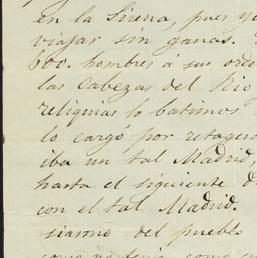 en la Sirena, pues yo
viajar sin ganas.
600. hombres á sus orde
las Cabezas del Rio
reliquias lo batimos
lo cargó por retagua
iba un tal Madrid,
hasta el siguiente d
con el tal Madrid.
del pueblo
como no tenia como